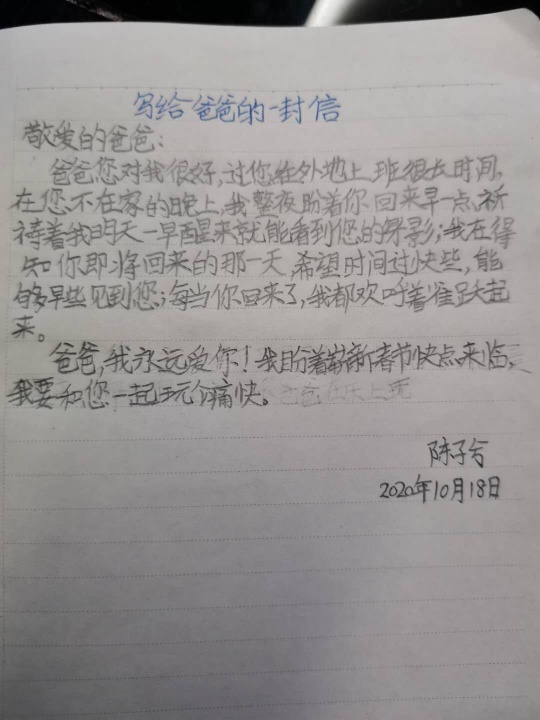 写给爸爸的一封信
敬爱的爸爸：
爸爸您对我很好，过您在外地上班很长时间，
在您不在家的晚上，我整夜盼着你回来早一点，祈
祷着我明天一早醒来就能看到您的身影；我在得
知你即将回来的那一天，希望时间过快些，能
够早些见到您；每当你回来了，我都欢呼着雀跃起
来。
爸爸，我永远爱你！我盼着新春节快点来临，
我要和您一起玩个痛快。
陈子兮
2020年10月18日